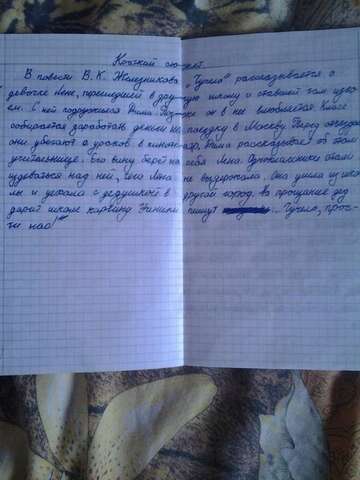 Краткий сюжет.
В повести В.К. Железникова „Чучело" рассказывается о
девочке Лене, перешедшей в другую школу и ставшей там изго-
ем. С ней подружился Дима Позже он в нее влюбляется Класс
собирается заработать деньги на поездку в Москву Перед отъездом
они убегают с уроков в кинотеатр, Дима рассказывает об этом
учительнице. Его вину берет на себя Лена. Одноклассники стали
издеваться над ней, Лена не выдержала. Она ушла из шко-
лы и уехала с дедушкой в другой город, на прощание дед
дарит школе картину Ученики пишут ... Чучело, прос-
ти нас!